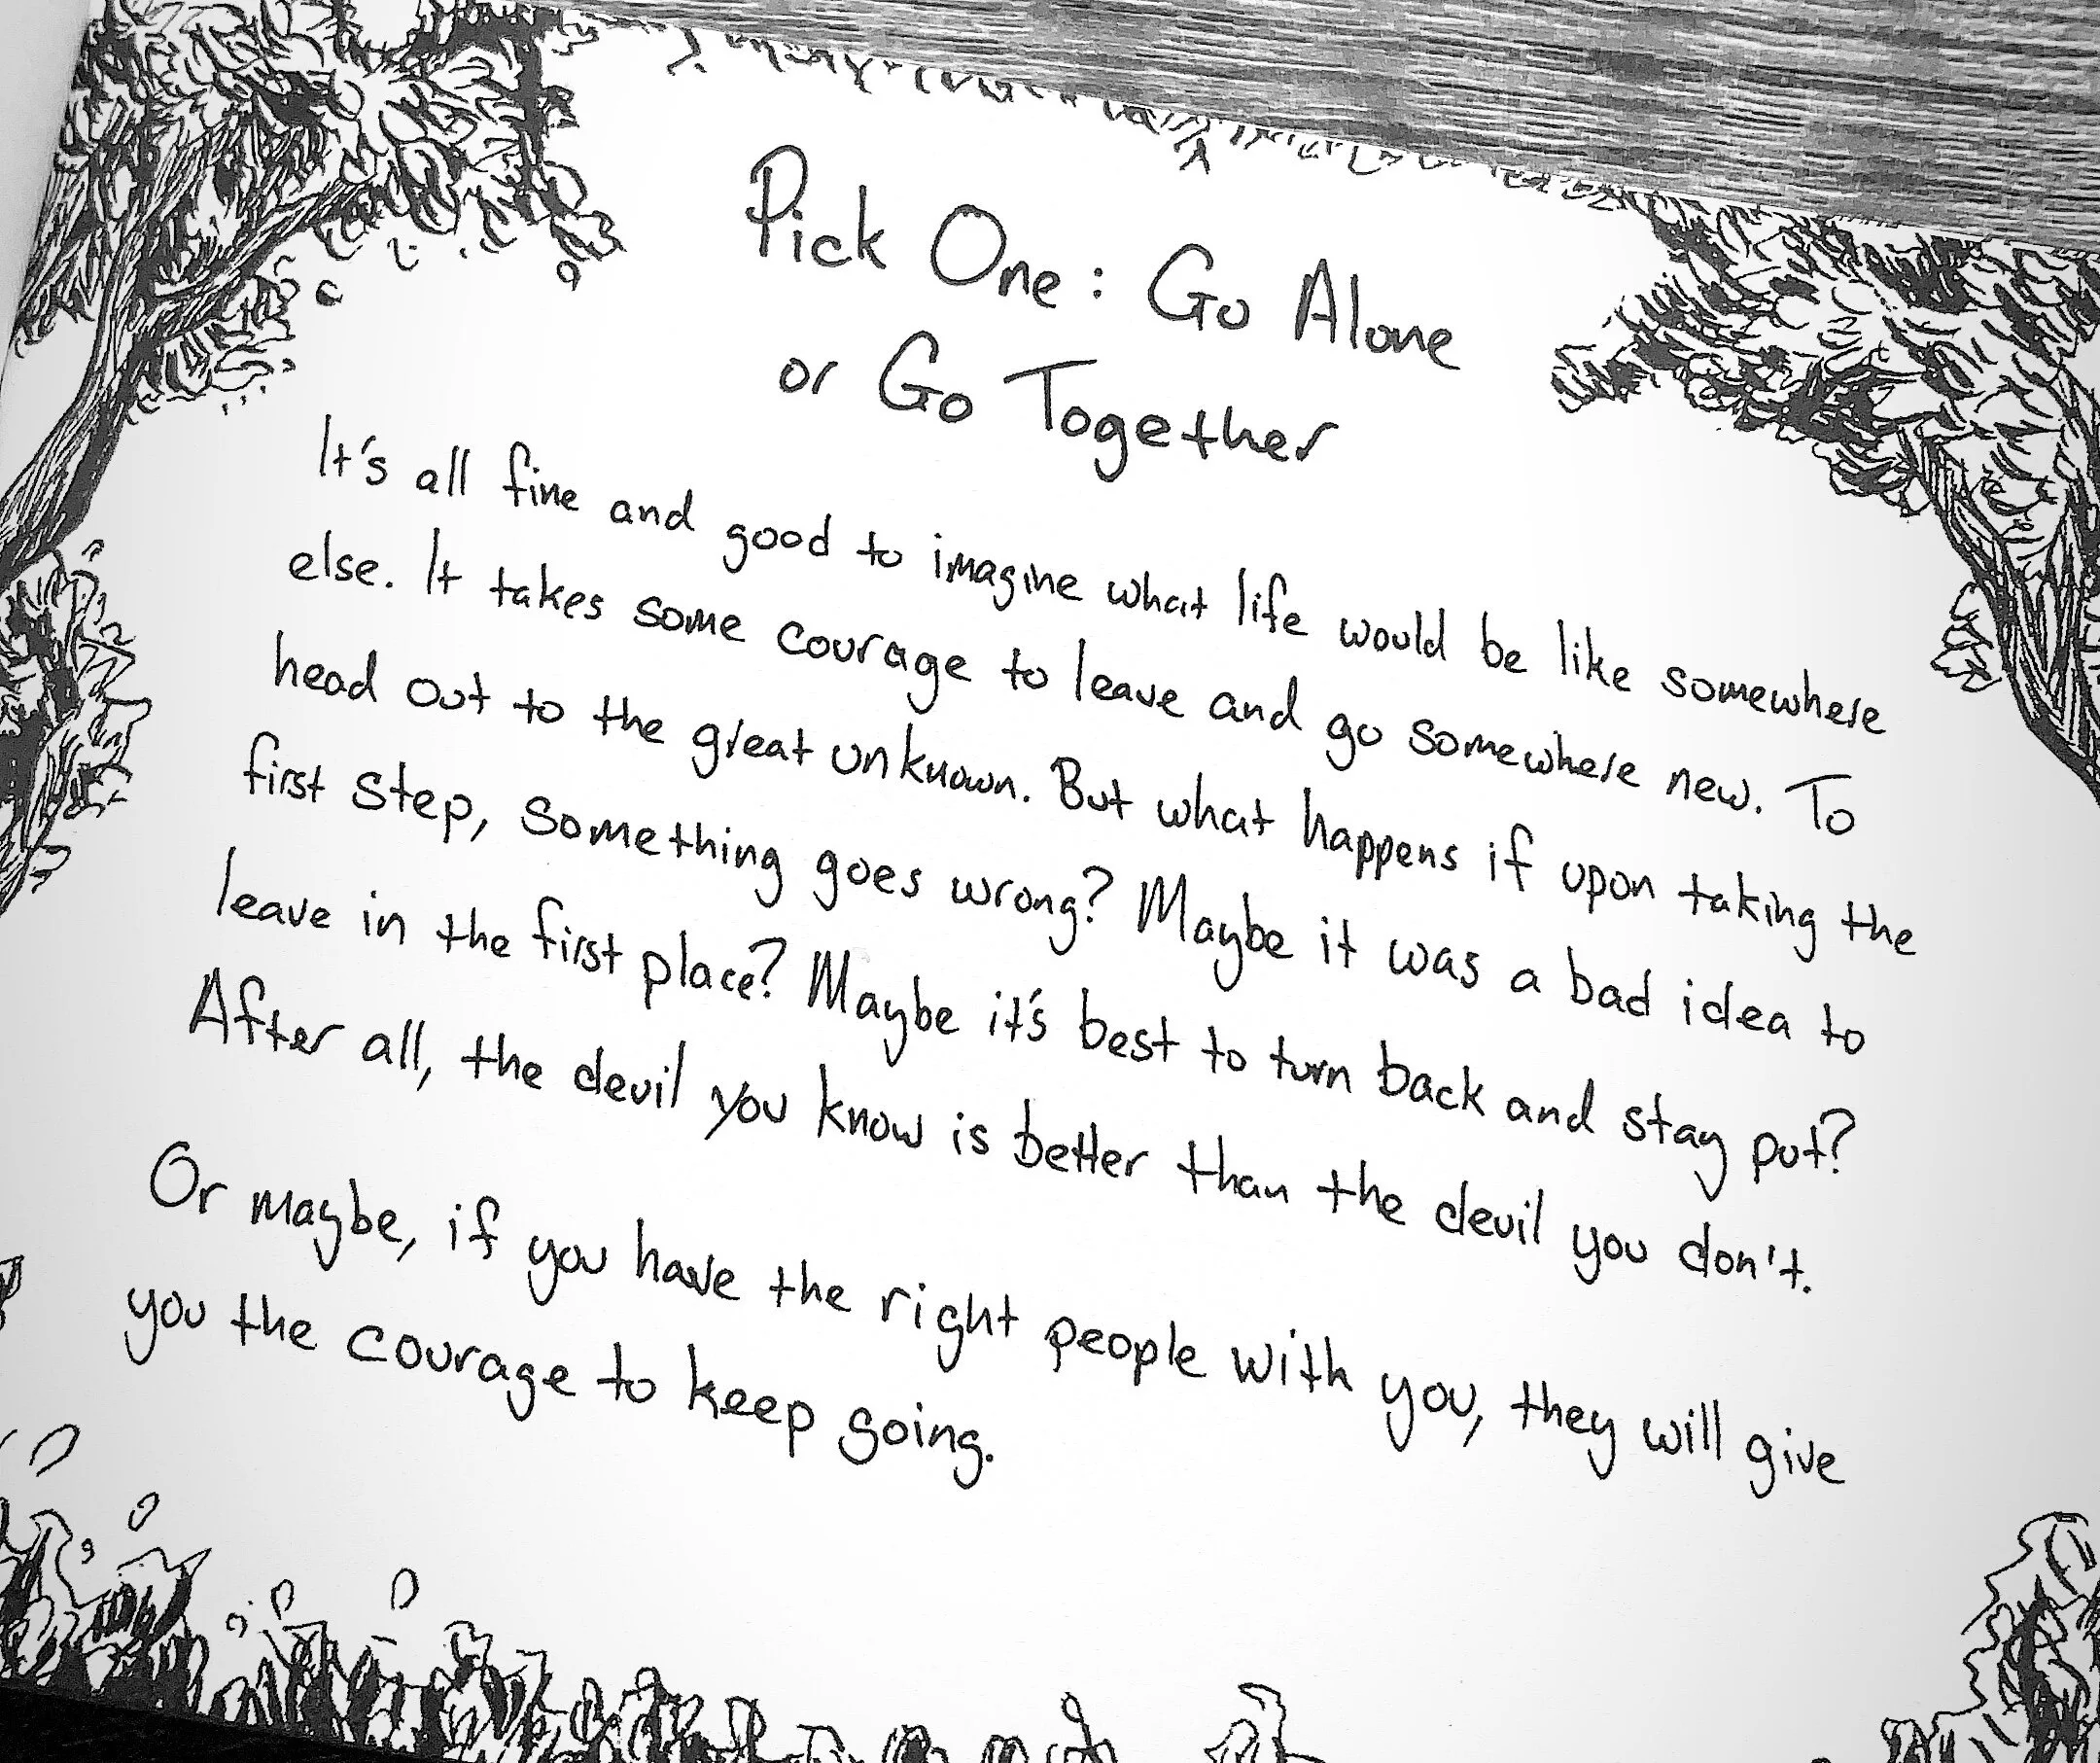 Pick One: Go Alone
or Go Together
It's all fine and good to imagine what life would be like somewhere
else. It takes some courage to leave and go somewhere new. To
head out to the great unknown. But what happens if upon taking the
first step, something goes wrong? Maybe it was a bad idea to
leave in the first place? Maybe it's best to turn back and stay put?
After all, the devil you know is better than the devil you don't.
Or maybe, if you have the right people with you, they will give
you the courage to keep going.